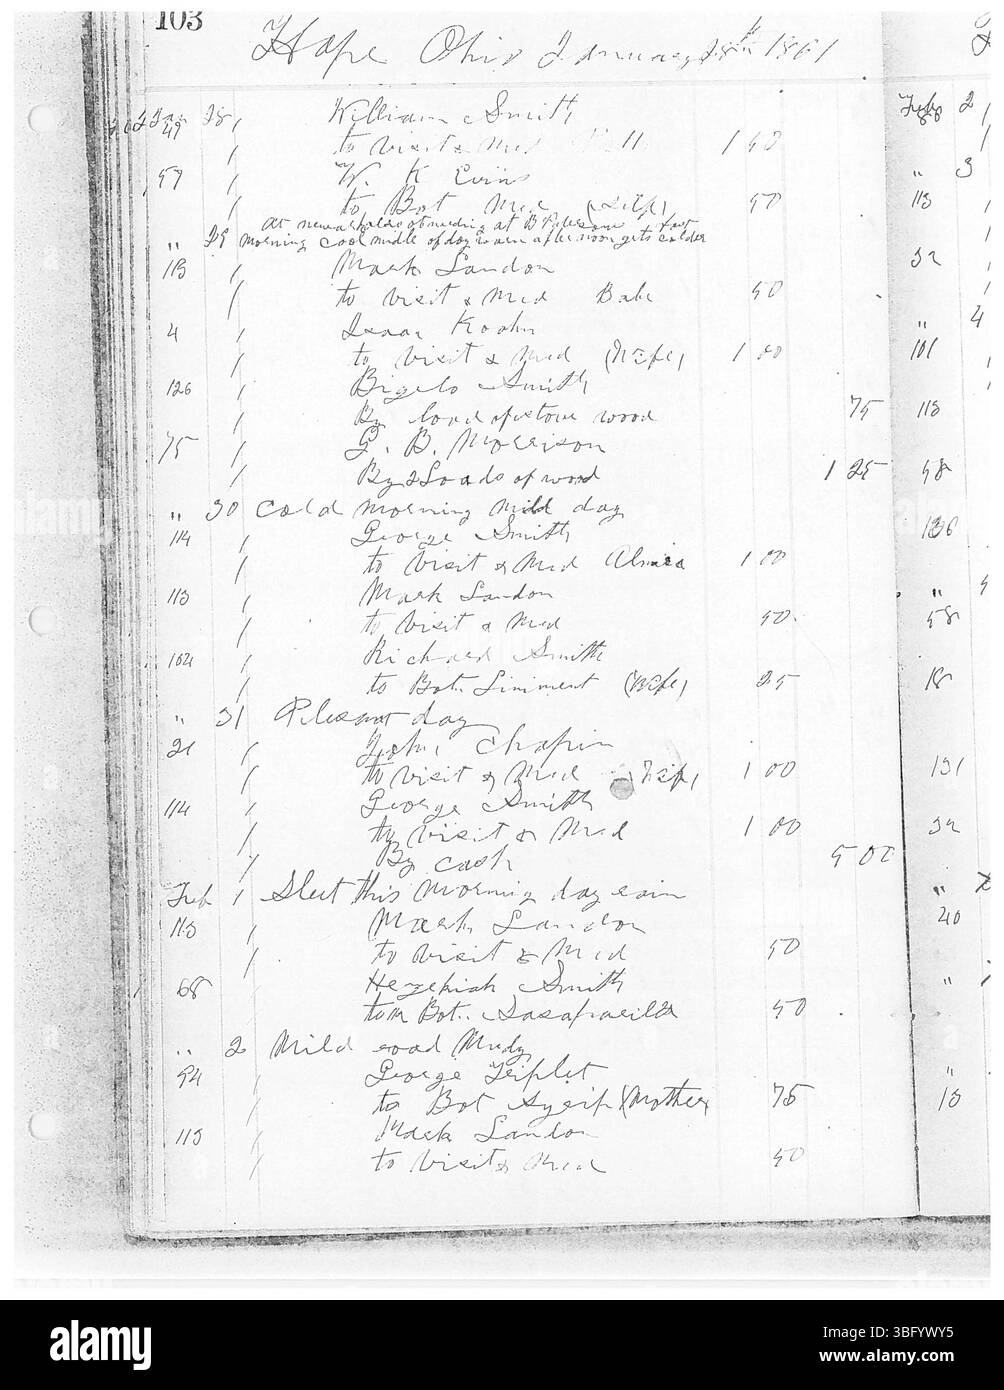 103
Hope Ohio January 28th 1861
Jan 28 William Smith
49 to visit & Med 1 50
59 W. K Evins
to Bot Med (Self) 50
at B
" 29 morning cool middle of day warm afternoon gets colder
113 Mark Landon
to visit & Med Babe 50
4 Isaac Koohn
to visit & Med (Wife) 1 00
126 Bigelo Smith
By load of stove wood 75
75 G. B. Morrison
By 2 Loads of wood 1 25
" 30 Cold morning mild day
114 George Smith
to visit & Med Almira 1 00
113 Mark Landon
to visit & Med 50
104 Richard Smith
to Bot. Liniment (Wife) 25
" 31 Plesant day
21 John Chapin
to visit & Med (Wife) 1 00
114 George Smith
to visit & Med 1 00
By cash 5 00
Feb 1 Sleet this morning day rain
113 Mark Landon
to visit & Med 50
68 Hezekiah Smith
to Bot. Sasafrarilla 50
" 2 Mild road Mudy
94 George Triplet
to Bot Syrip (Mother) 75
113 Mark Landon
to visit & Med 50
Feb 2
88
" 3
113
32
" 4
101
113
58
136
"
58
18
131
32
"
40
"
"
13
alamy
Image ID: 3BFYWY5
www.alamy.com